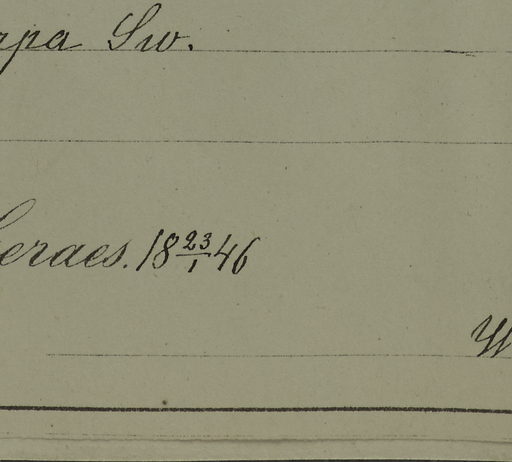 rpa Sw.
Geraes. 18 23/1 46
W